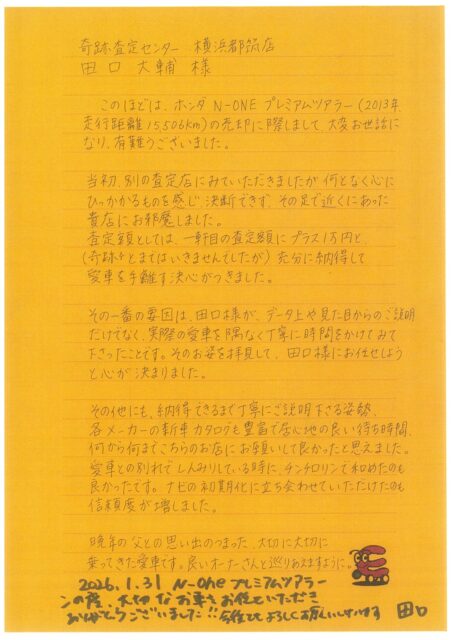 奇跡査定センター 横浜都筑店
田口 大輔 様
このほどは、ホンダ N-ONE プレミアムツアラー(2013年、
走行距離15,506km)の売却に際しまして、大変お世話に
なり、有難うございました。
当初、別の査定店にみていただきましたが、何となく心に
ひっかかるものを感じ、決断できず、その足で近くにあった
貴店にお邪魔しました。
査定額としては、一軒目の査定額にプラス1万円と、
(奇跡とまではいきませんでしたが) 充分に納得して
愛車を手離す決心がつきました。
その一番の要因は、田口様が、データ上や見た目からのご説明
だけでなく、実際の愛車を隅なく丁寧に時間をかけてみて
下さったことです。そのお姿を拝見して、田口様にお任せしよう
と心が決まりました。
その他にも、納得できるまで丁寧にご説明下さる姿勢、
各メーカーの新車カタログも豊富で居心地の良い待ち時間、
何から何までこちらのお店にお願いして良かったと思えました。
愛車との別れで しんみりしている時に、チンチロリンで和めたのも
良かったです。ナビの初期化に立ち会わせていただけたのも
信頼度が増しました。
晩年の父との思い出のつまった、大切に大切に
乗ってきた愛車です。良いオーナーさんと巡りあえますように。
2026.1.31 N-one プレミアムツアラー
この度、大切なお車をお任せいただき
ありがとうございました!! 今後ともよろしくお願いいたします 田口